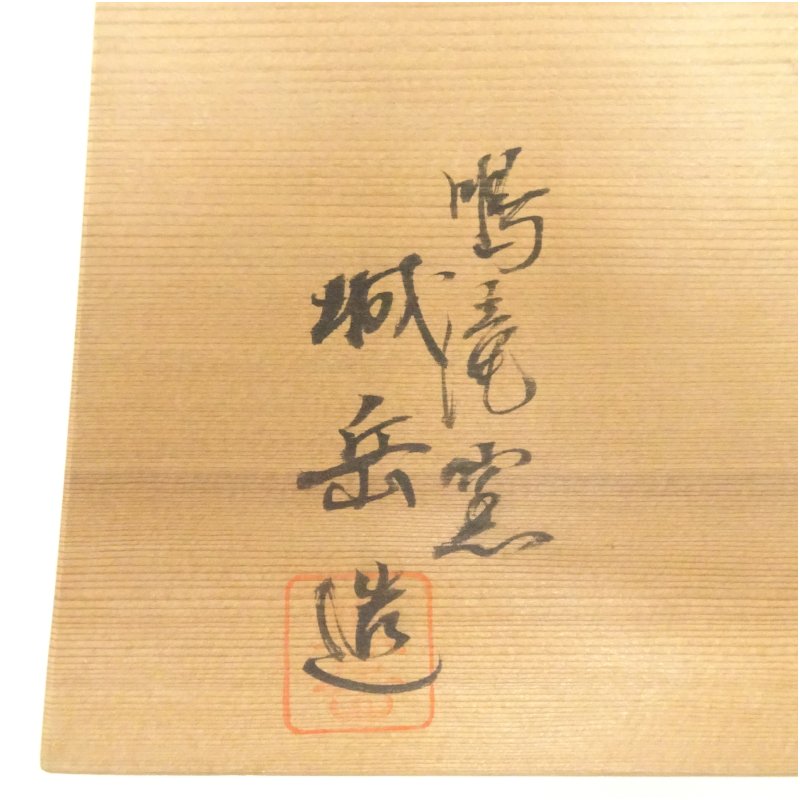 鳴滝窯
城岳造